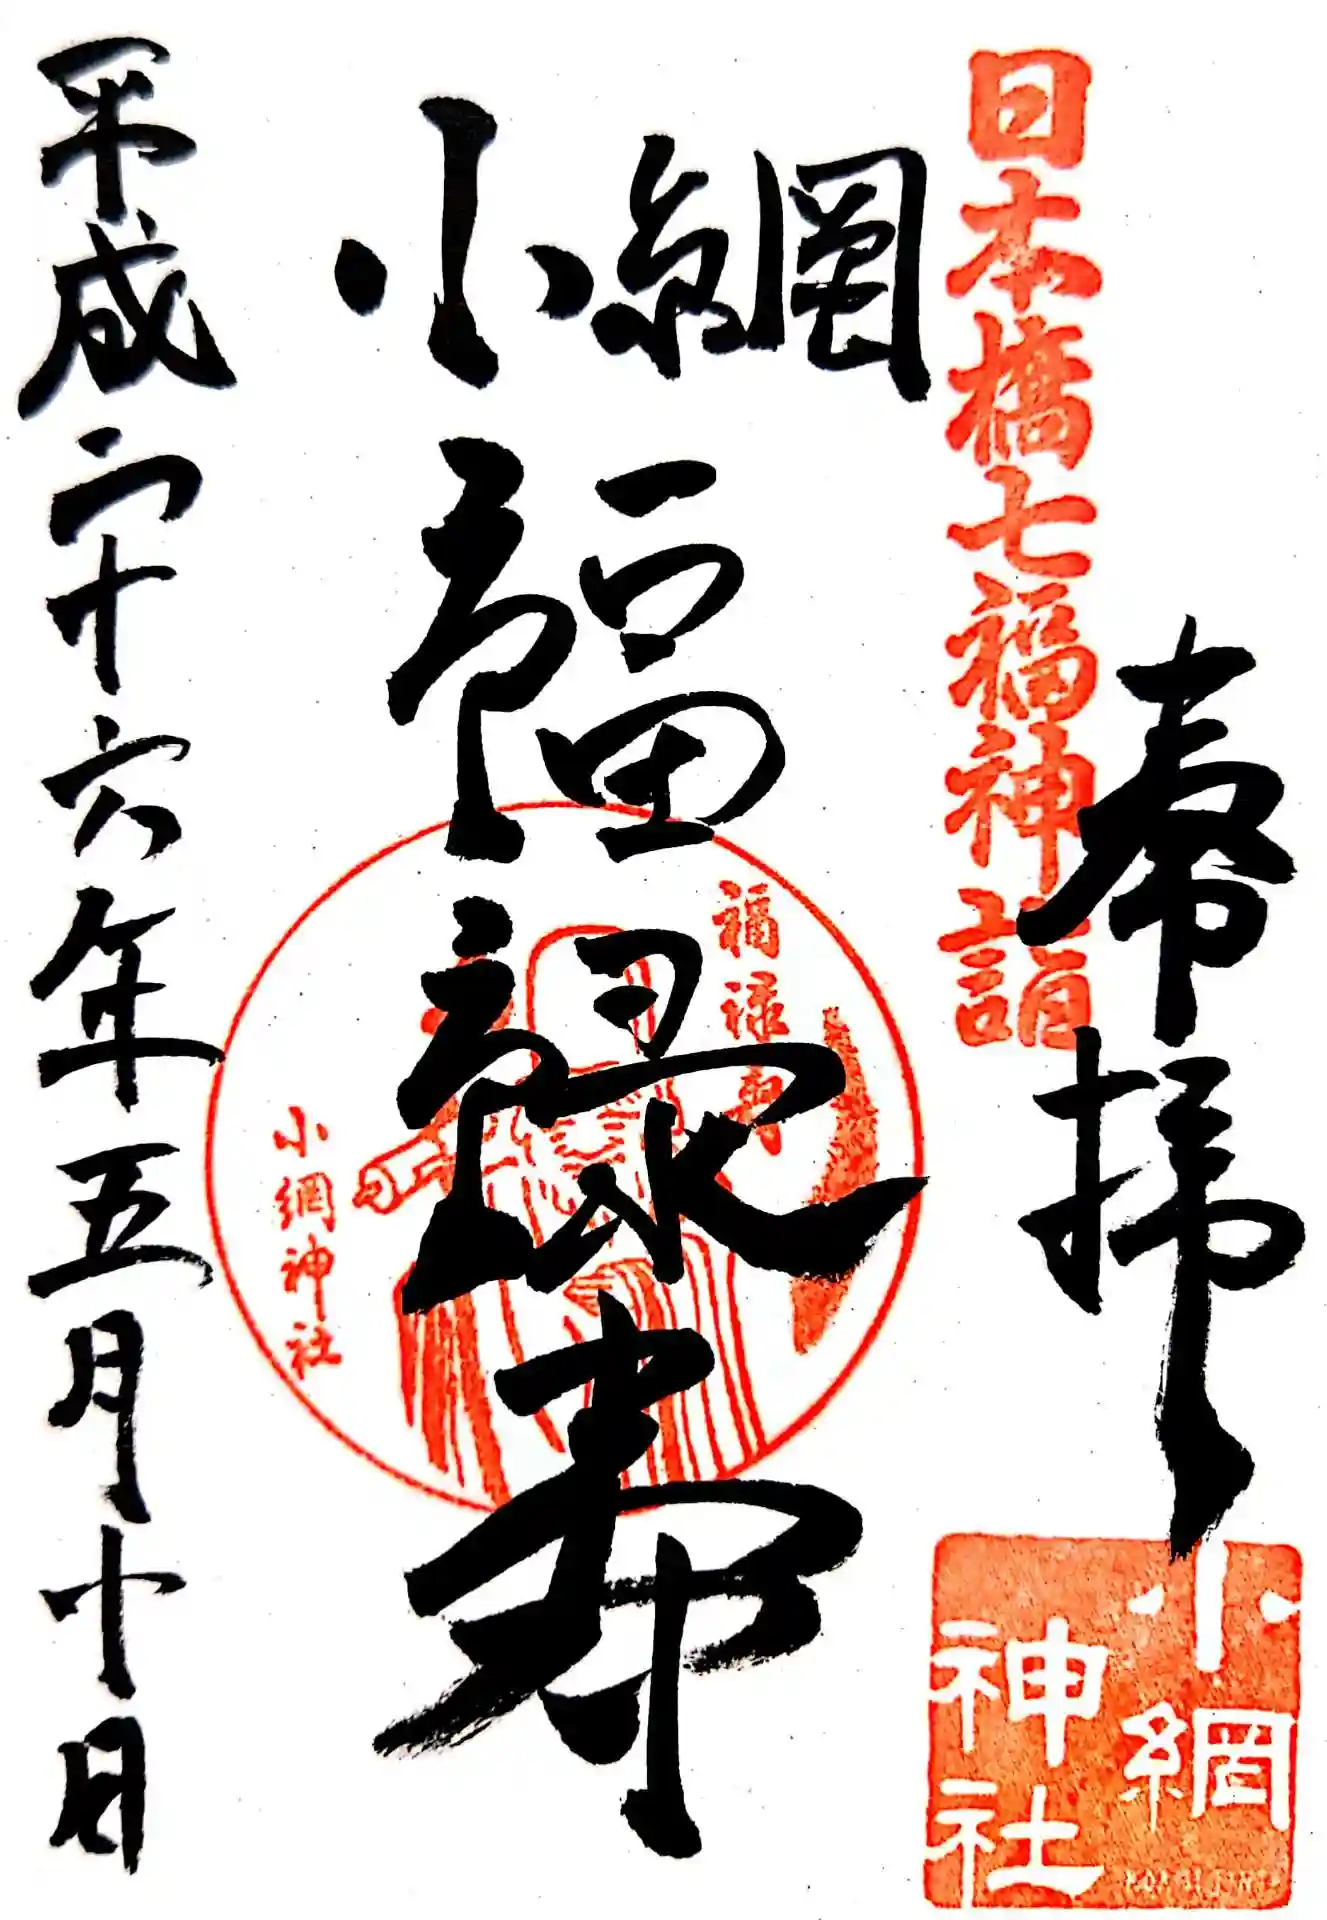 奉拝
日本橋七福神詣
小網神社
小網
福禄寿
福禄寿
小網神社
平成二十六年五月十日